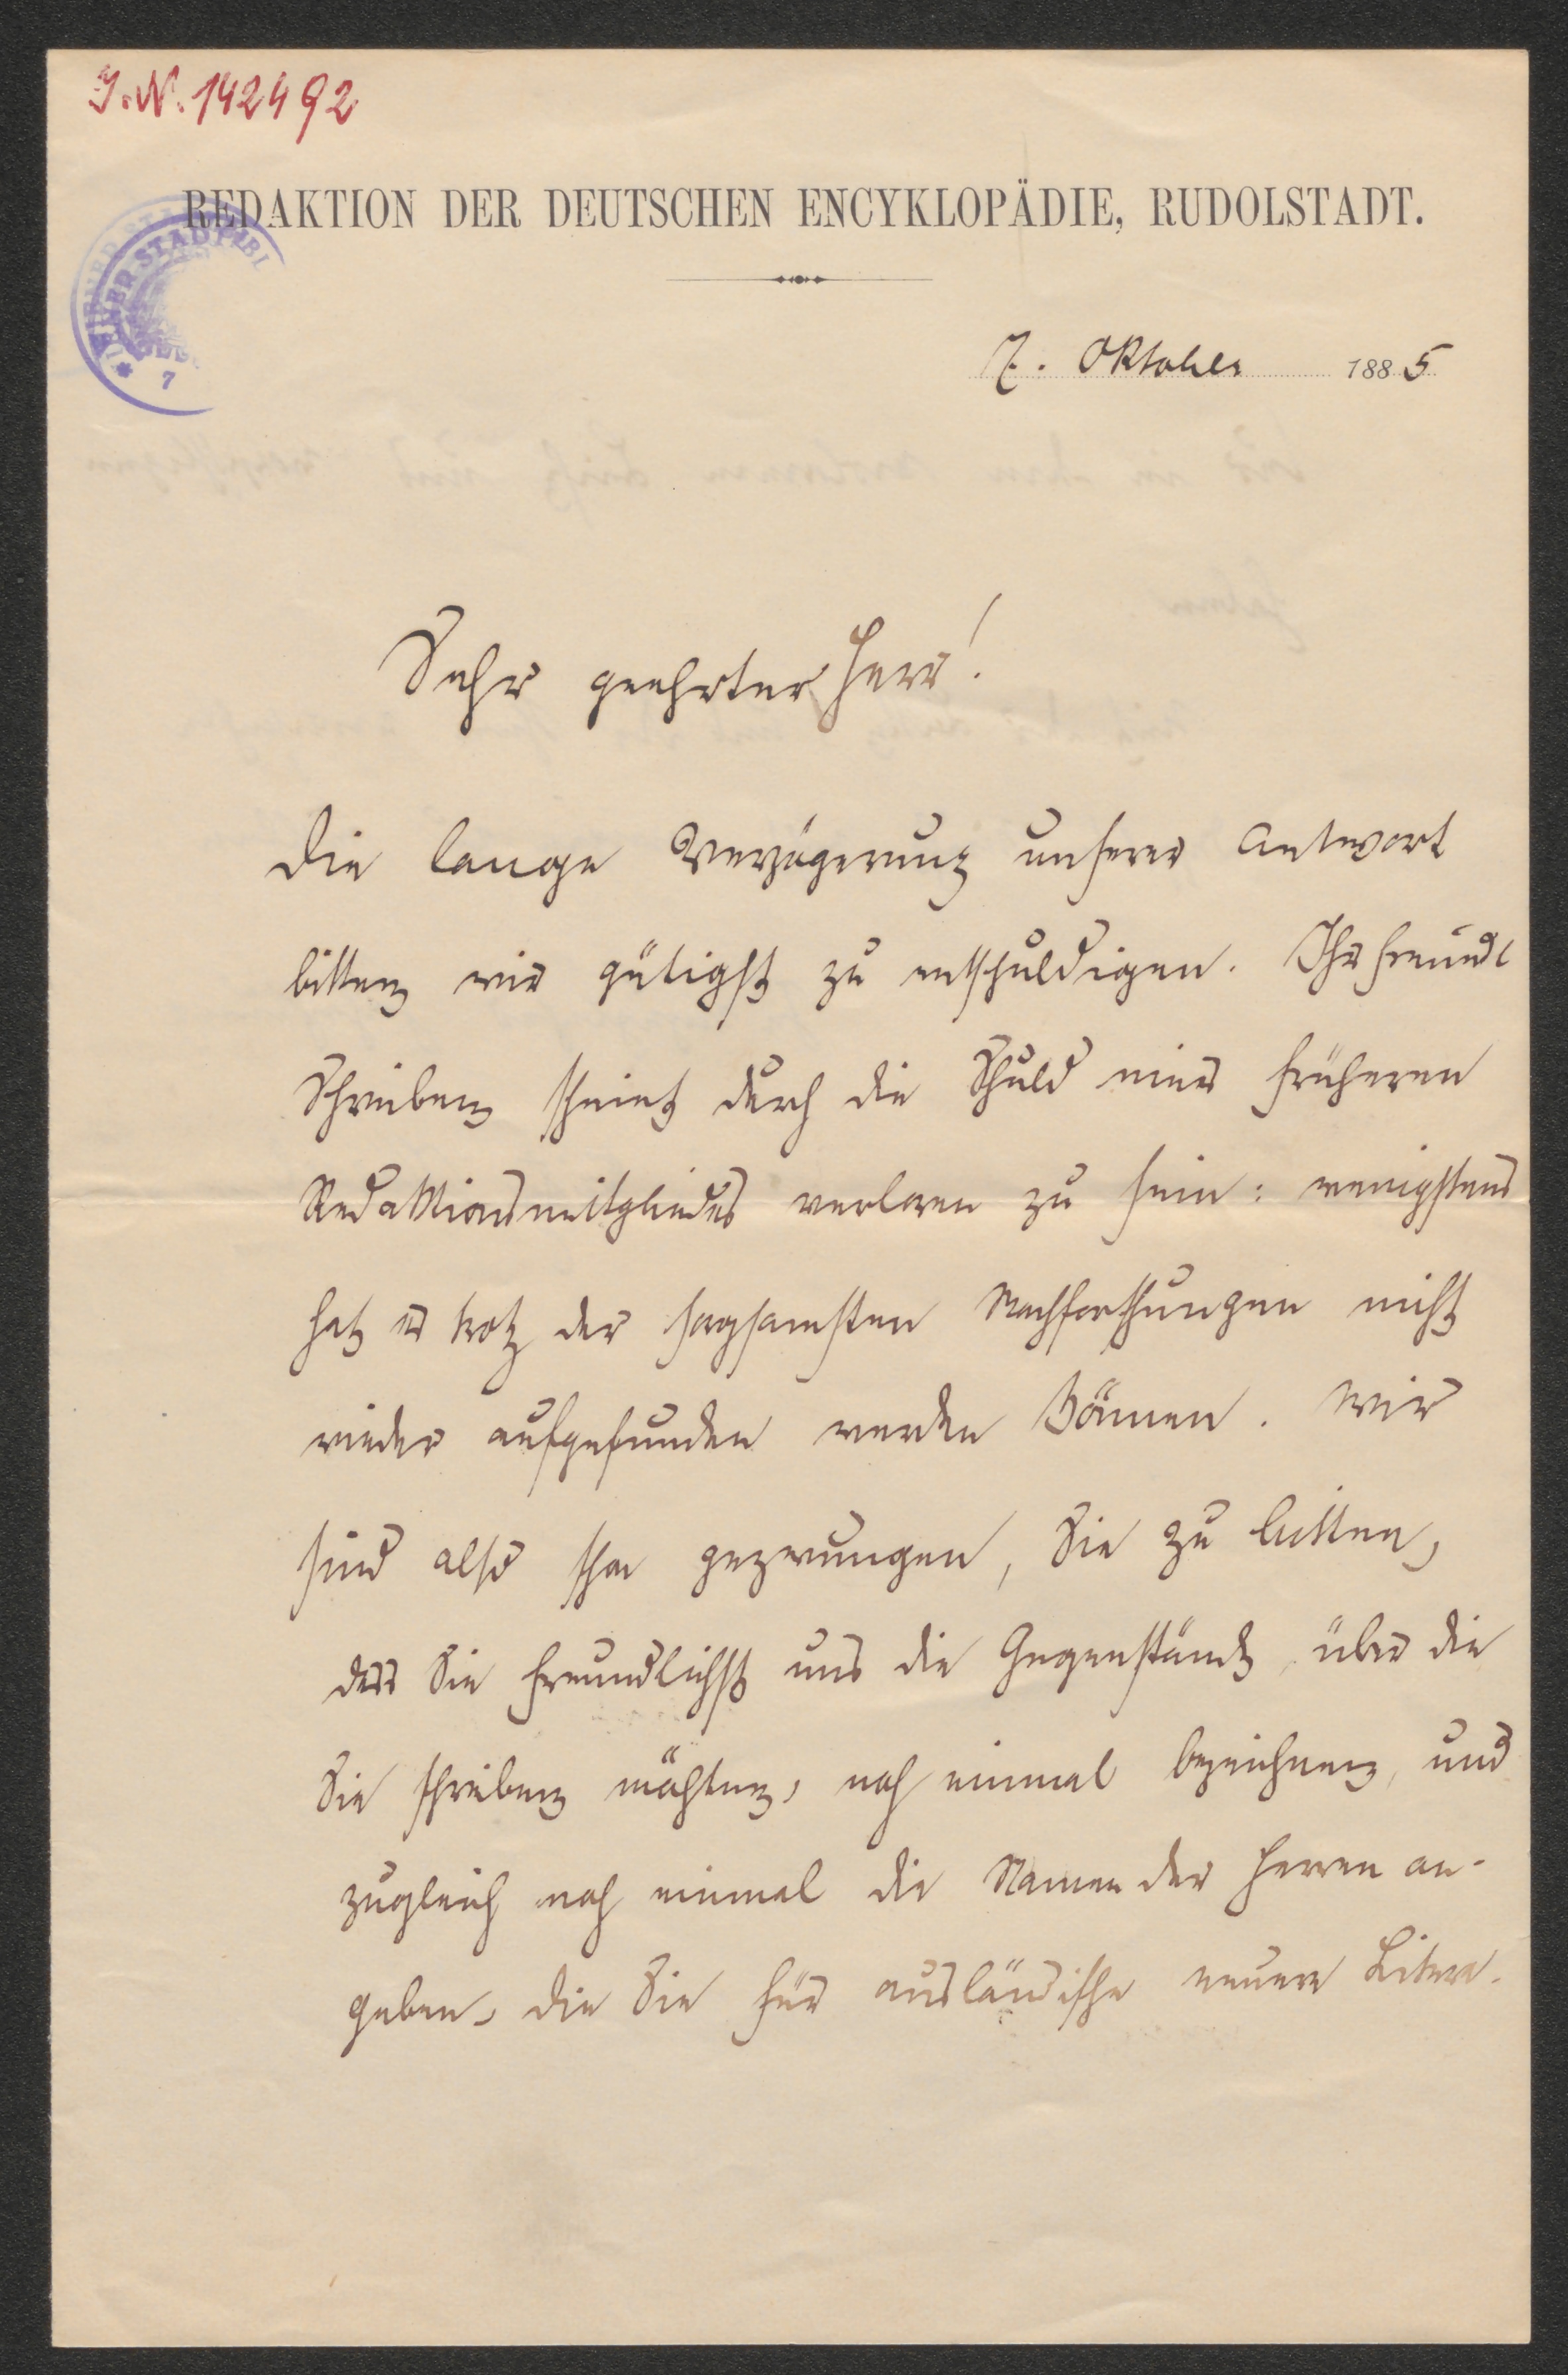 J. N. 142492
REDAKTION DER DEUTSCHEN ENCYKLOPÄDIE, RUDOLSTADT.
WIENER STADTBI
7
7. Oktober 1885
Sehr geehrter Herr!
Die lange Verzögerung unserer Antwort
bitten wir gütigst zu entschuldigen. Ihr freundl
Schreiben scheint durch die Schuld eines früheren
Redaktionsmitgliedes verloren zu sein: wenigstens
hat es trotz der sorgsamsten Nachforschungen nicht
wieder aufgefunden werden können. Wir
sind also schon gezwungen, Sie zu bitten,
dass Sie freundlichst uns die Gegenstände, über die
Sie schreiben möchten, noch einmal bezeichnen, und
zugleich noch einmal die Namen der Herren an-
geben, die Sie für ausländische neuere Litera-